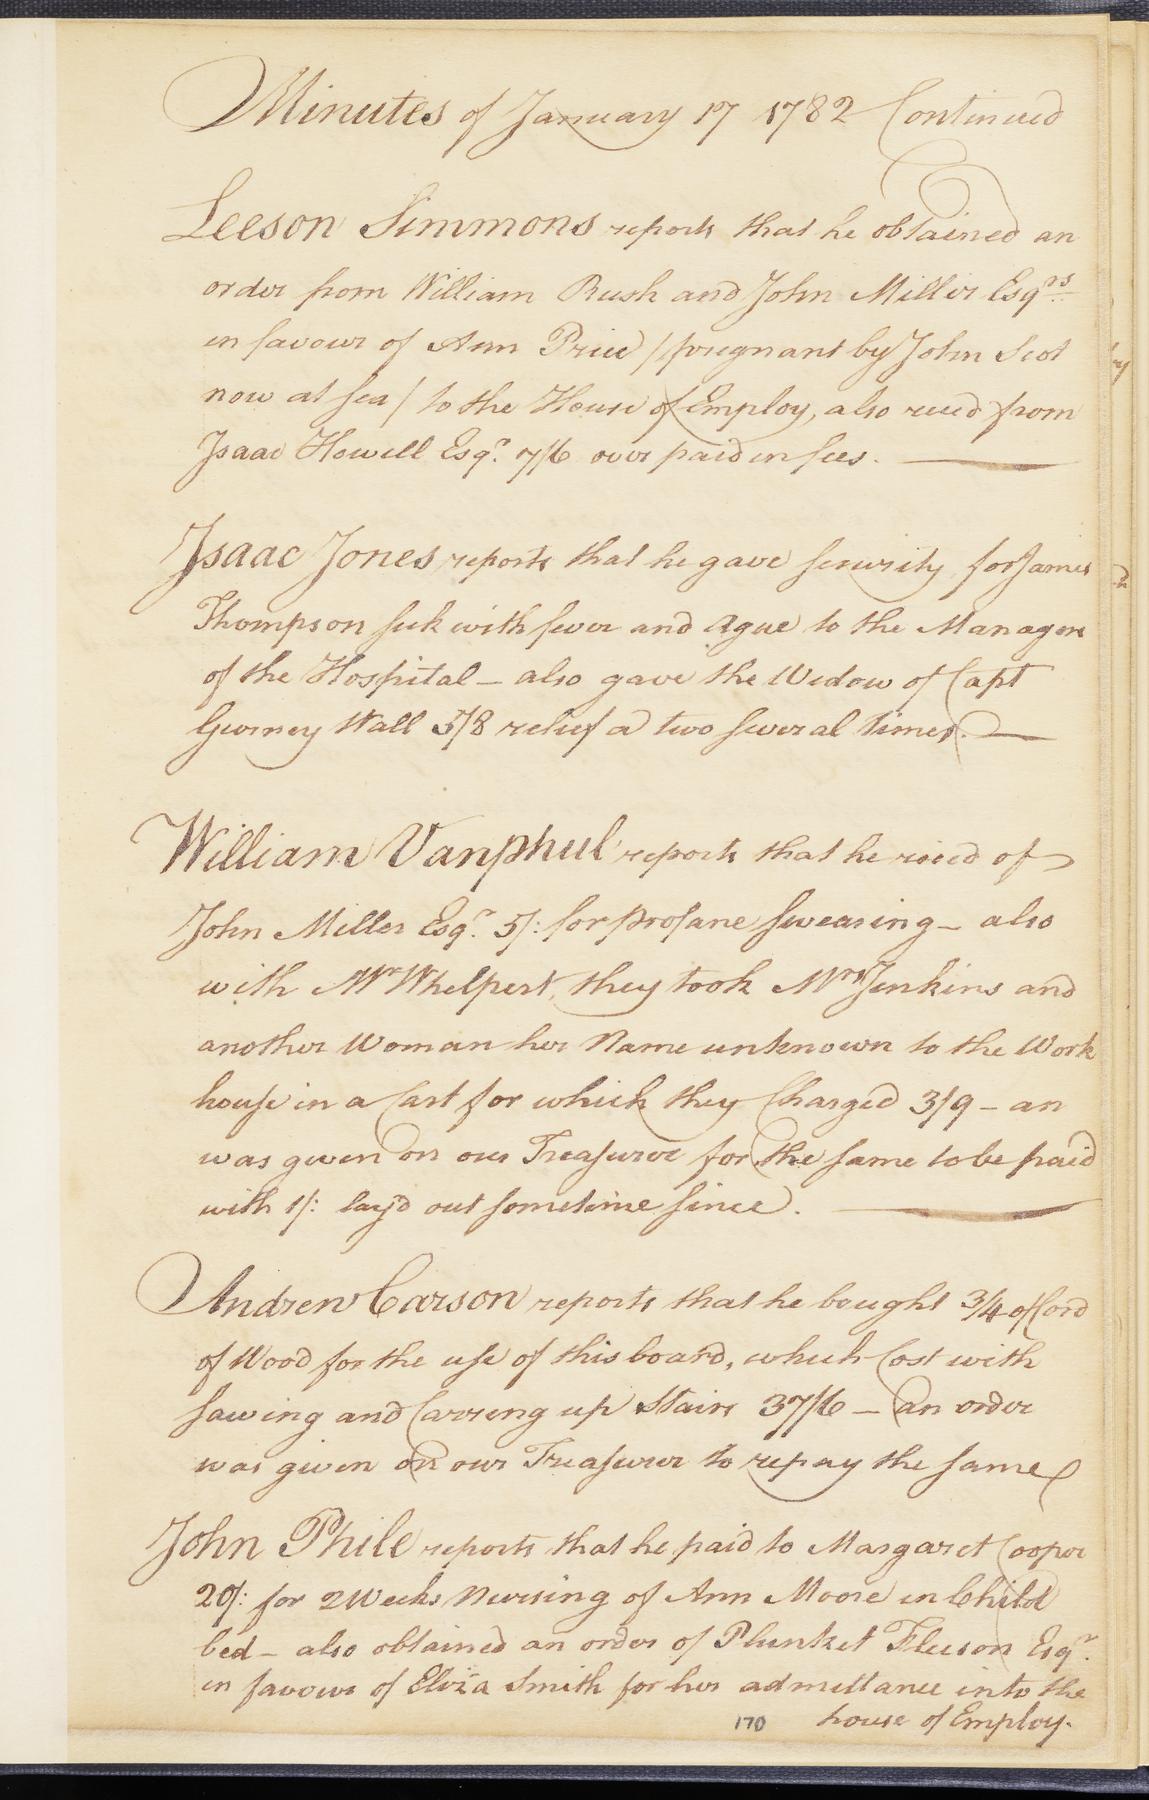 Minutes of January 17 1782 Continued
Leeson Simmons reports that he obtained an
order from William Rush and John Miller Esqrs
in favour of Ann Price / pregnant by John Scot
now at sea / to the House of Employ, also recd from
Isaac Howell Esqr. 7/6 over paid in fees.
Isaac Jones reports that he gave security for James
Thompson sick with fever and Ague to the Managers
of the Hospital - also gave the Widow of Capt
Gurney Wall 5/8 relief a two several times.
William Vanphul reports that he recd of
John Miller Esqr. 5/: for profane swearing - also
with Mr Whelpert, they took Mrs Jenkins and
another Woman her Name unknown to the Work
house in a Cart for which they Charged 3/9 - an
was given on our Treasurer for the same to be paid
with 1/: lay'd out sometime since.
Andrew Carson reports that he bought 3/4 of Cord
of Wood for the use of this board, which Cost with
sawing and Carreng up Stairs 37/6 - an order
was given on our Treasurer to repay the same
John Phile reports that he paid to Margaret Cooper
20/: for 2 Weeks Nursing of Ann Moore in Child
bed - also obtained an order of Plunket Fleeson Esqr.
in favour of Elviza Smith for her admittance into the
house of Employ.
170